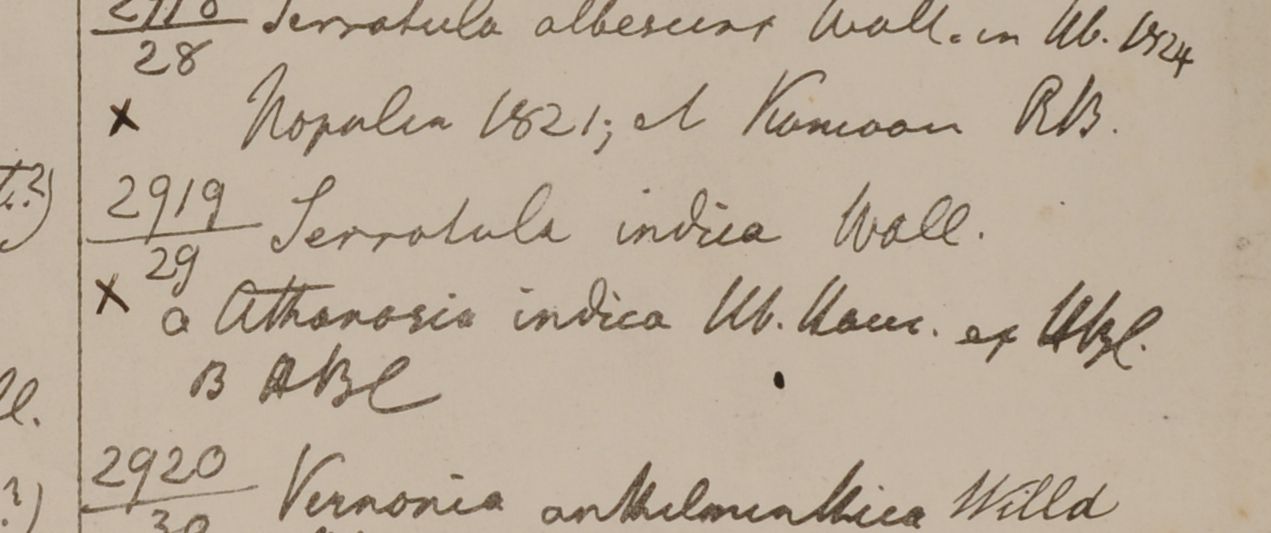 2918 Serratula albescens Wall. in Hb. 1824
28
x Napalia 1821; et Kamaon RB.
2919 Serratula indica Wall.
29
x a Athanasia indica Hb. Ham. ex HBC.
B HBC
2920 Vernonia anthelminthica Willd
30